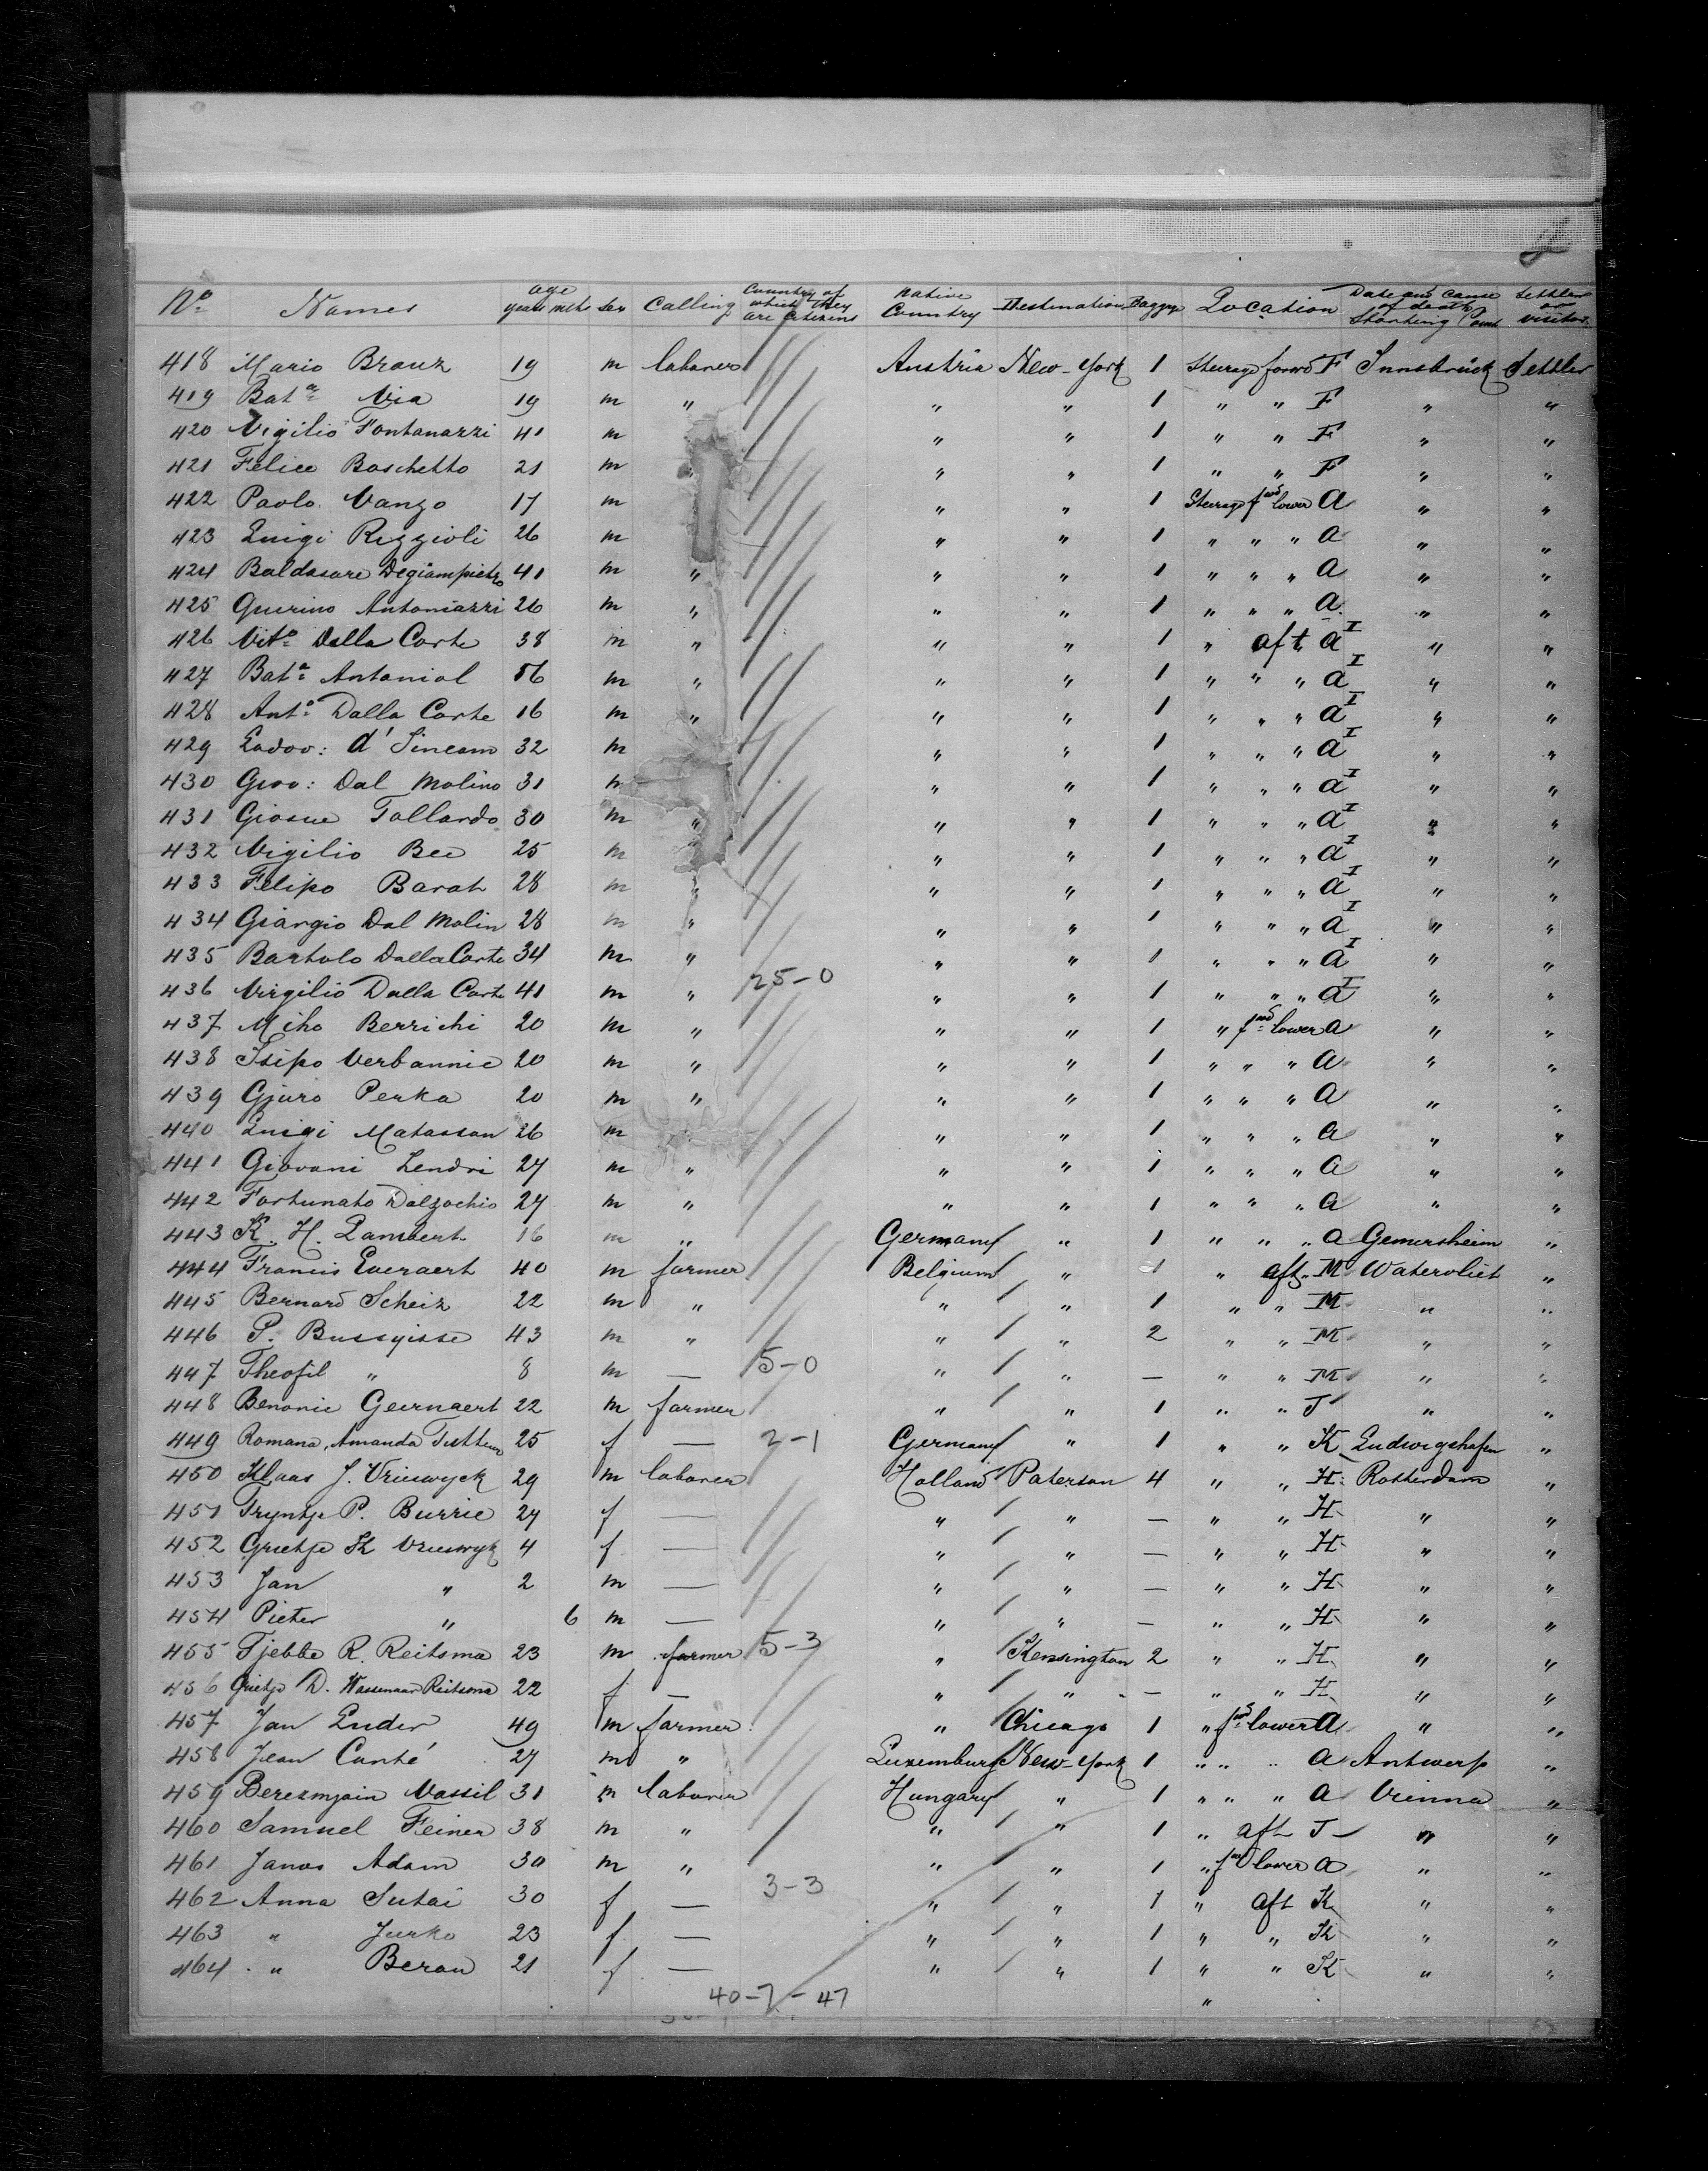 No. Names age years mths sex Calling Country of which they are citizens Native Country Destination Baggage Location Date and cause of death Starting Point Settler or visitor
418 Mario Branz 19 m laborer Austria New-York 1 Steerage forwd F Innsbruck Settler
419 Bata Via 19 m " " " 1 " " F " "
420 Vigilio Fontanazzi 41 m " " 1 " " F " "
421 Felice Boschetto 21 m " " " 1 " " F " "
422 Paolo Vanzo 17 m " " 1 Steerage fwd lower a " "
423 Luigi Rizzioli 26 m " " 1 " " " a " "
424 Baldasare Degiampietro 41 m " " " 1 " " " a " "
425 Guerino Antoniazzi 26 m " " " 1 " " " a " "
426 Vito Dalla Corte 38 m " " " 1 " aft a I " "
427 Bata Antoniol 56 m " " " 1 " " " a I " "
428 Anto Dalla Corte 16 m " " " 1 " " " a I " "
429 Lodov: d' Sincam 32 m " " 1 " " " a I " "
430 Giov: Dal Molino 31 m " " 1 " " " a I " "
431 Giosue Tollardo 30 m " " " 1 " " " a I " "
432 Vigilio Bee 25 m " " " 1 " " " a I " "
433 Felipo Barat 28 m " " " 1 " " " a I " "
434 Giorgio Dal Molin 28 m " " " 1 " " " a I " "
435 Bartolo Dalla Corte 34 m " " " 1 " " " a I " "
436 Virgilio Dalla Corte 41 m " 25-0 " " 1 " " " a I " "
437 Miho Berrichi 20 m " " " 1 " fwd lower a " "
438 Isipo Verbannic 20 m " " " 1 " " " a " "
439 Gjuro Perka 20 m " " " 1 " " " a " "
440 Luigi Matassan 26 m " " 1 " " " a " "
441 Giovani Zendri 27 m " " " 1 " " " a " "
442 Fortunato Dalzochio 27 m " " " 1 " " " a " "
443 K. H. Lambert 16 m " Germany " 1 " " " a Gemersheim "
444 Francis Everaert 40 m farmer Belgium " 1 " aft " M Watervliet "
445 Bernard Scheiz 22 m " " " 1 " " M " "
446 P. Bussyisse 43 m " " " 2 " " M " "
447 Theofil " 8 m — 5-0 " " — " " M " "
448 Benonie Geernaert 22 m farmer " " 1 " " J " "
449 Romana, Amanda 25 f — 2-1 Germany " 1 " " K Ludwigshafen "
450 Klaas J. Vrieswyck 29 m laborer Holland Paterson 4 " " H Rotterdam "
451 Tryntje P. Burrie 27 f — " " — " " H " "
452 Grietje K Vrieswyk 4 f — " " — " " H " "
453 Jan " 2 m — " " — " " H " "
454 Pieter " 6 m — " " — " " H " "
455 Tjebbe R. Reitsma 23 m farmer 5-3 " Kensington 2 " " H " "
456 Grietje D. Wassenaar Reitsma 22 f — " " — " " H " "
457 Jan Luder 49 m farmer " Chicago 1 " fwd lower a " "
458 Jean Conté 27 m " Luxemburg New-York 1 " " " a Antwerp "
459 Berezmjain Vassil 31 m laborer Hungary " 1 " " " a Vienna "
460 Samuel Feiner 38 m " " " 1 " aft J " "
461 Janos Adam 30 m " " " 1 " fwd lower a " "
462 Anna Sutai 30 f — 3-3 " " 1 " aft K " "
463 " Jurko 23 f — " " 1 " " K " "
464 " Beran 21 f — " " 1 " " K " "
40-7-47 "